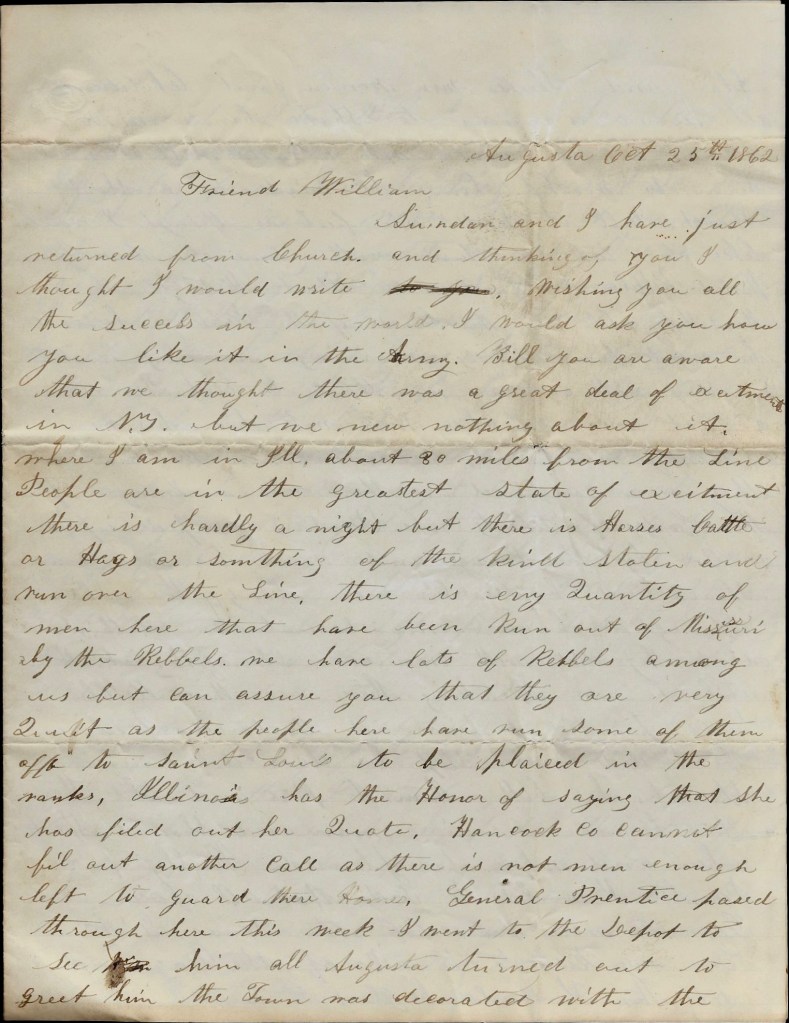 Augusta Oct 25th 1862
Friend William
and I have just
returned from Church. and thinking of you I
thought I would write to you. Wishing you all
the success in the world. I would ask you how
you like it in the Army. Bill you are aware
that we thought there was a great deal of excitment
in N.Y. but we new nothing about it.
where I am in Ill. about 80 miles from the Line
People are in the greatest state of exeitment
there is hardly a night but there is Horses Cattle
or Hogs or somthing of the kind stolen and
run over the Line, there is eny Quantity of
men here that have been Run out of Missuri
by the Rebbels. we have lots of Rebbels among
us but can assure you that they are very
Quiet as the people here have run some of them
off to saint Louis to be plaiced in the
ranks, Illinois has the Honor of saying that she
has filed out her Quota. Hancock Co cannot
fil out another Call as there is not men enough
left to guard there Homes. General Prentice pased
through here this week I went to the Depot to
see him all Augusta turned out to
greet him the Town was decorated with the